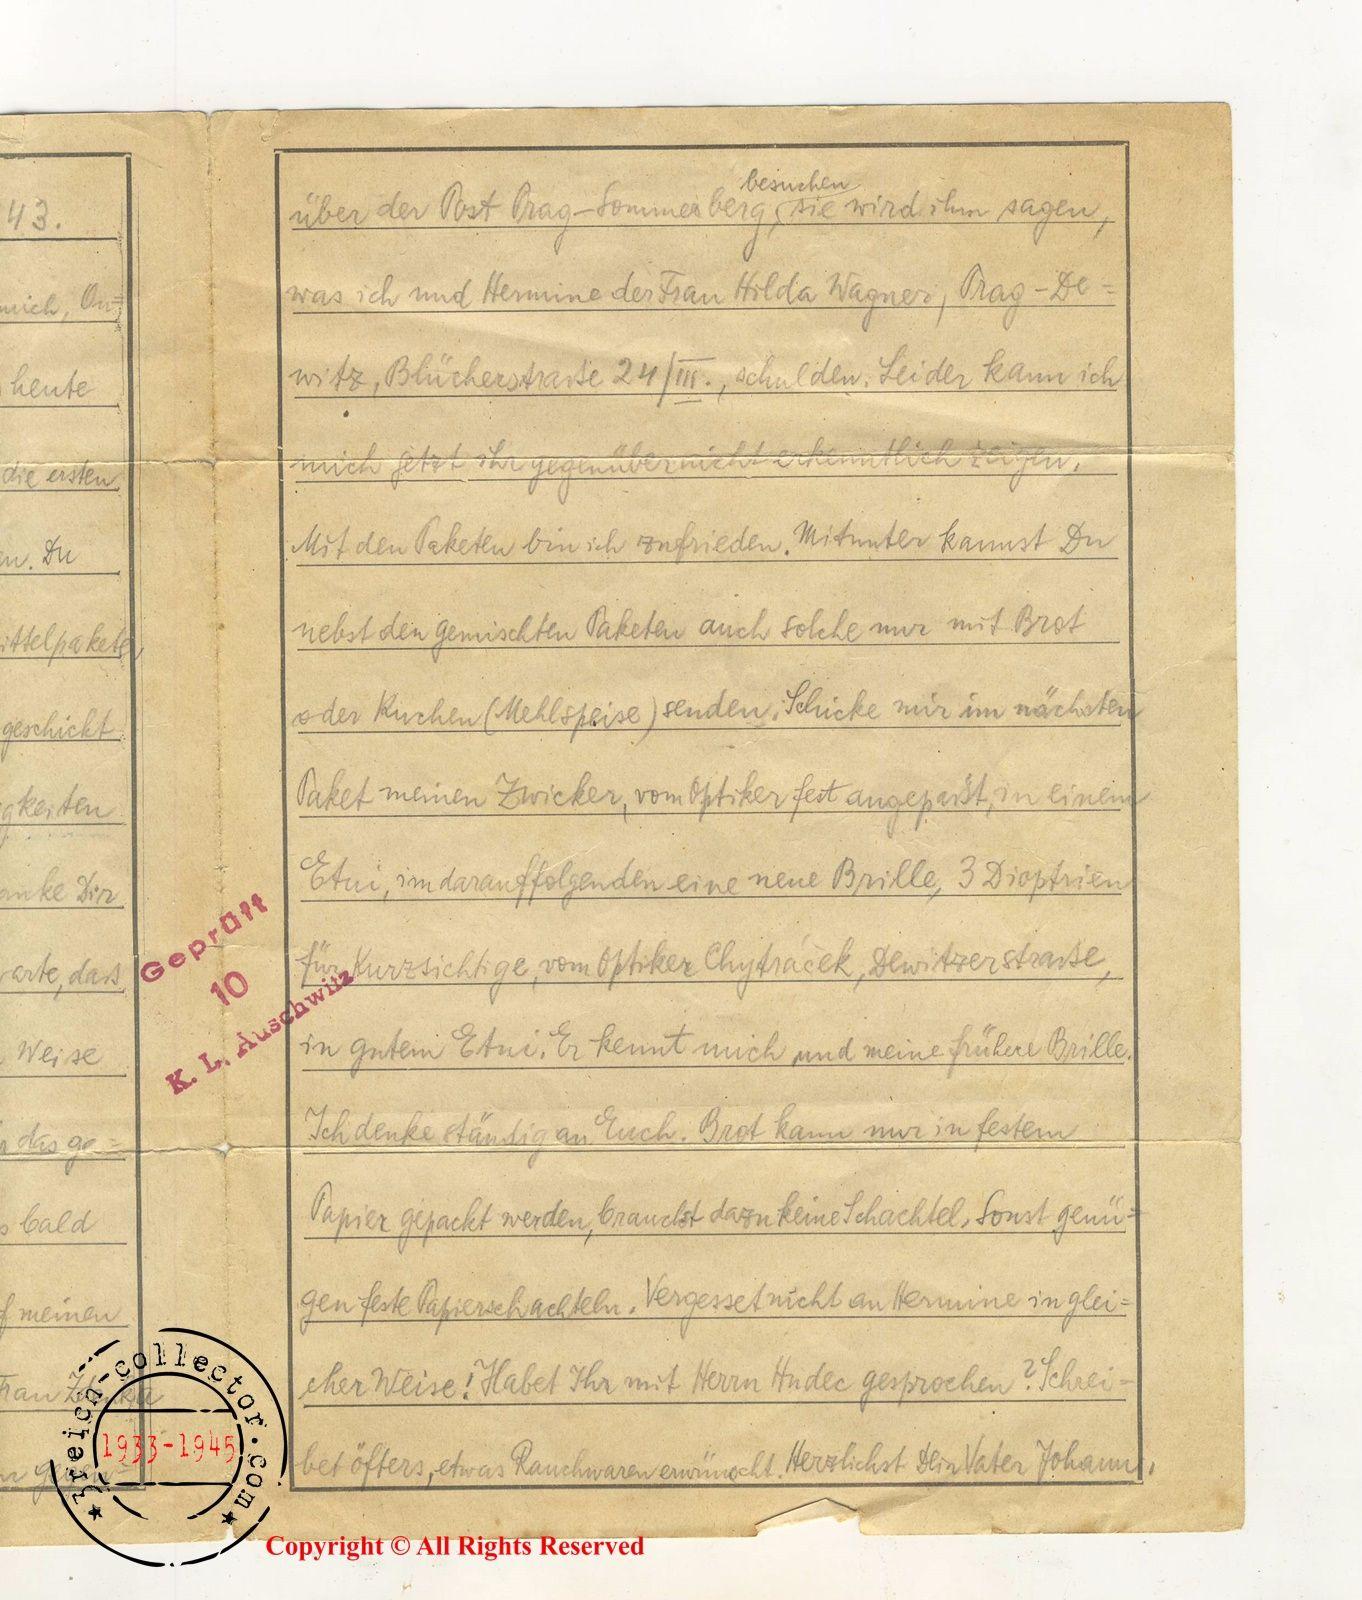 43.
mich, On=
heute
die ersten
en. Du
ittelpakete,
geschickt
gkeiten
anke Dir
arte, dass
Weise
das ge=
bald
meinen
Frau
besuchen
über der Post Prag-Sommerberg, sie wird ihm sagen,
was ich und Hermine der Frau Hilda Wagner, Prag-De=
witz, Blücherstraße 24/III., schulden. Leider kann ich
mich jetzt ihr gegenüber nicht erkenntlich zeigen.
Mit den Paketen bin ich zufrieden. Mitunter kannst Du
nebst den gemischten Paketen auch solche nur mit Brot
oder Kuchen (Mehlspeise) senden. Schicke mir im nächsten
Paket meinen Zwicker, vom Optiker fest angepaßt, in einem
Etui, im darauffolgenden eine neue Brille, 3 Dioptrien
für Kurzsichtige, vom Optiker Chytráček, Dewitzerstraße,
in gutem Etui. Er kennt mich und meine frühere Brille.
Ich denke ständig an Euch. Brot kann nur in festem
Papier gepackt werden, brauchst dazu keine Schachtel. Sonst genü=
gen feste Papierschachteln. Vergesset nicht an Hermine in glei=
cher Weise! Habet Ihr mit Herrn Hudec gesprochen? Schrei=
bet öfters, etwas Rauchwaren erwünscht. Herzlichst Dein Vater Johann.
Geprüft
10
K. L. Auschwitz
3reich-collector.com
1933-1945
Copyright © All Rights Reserved